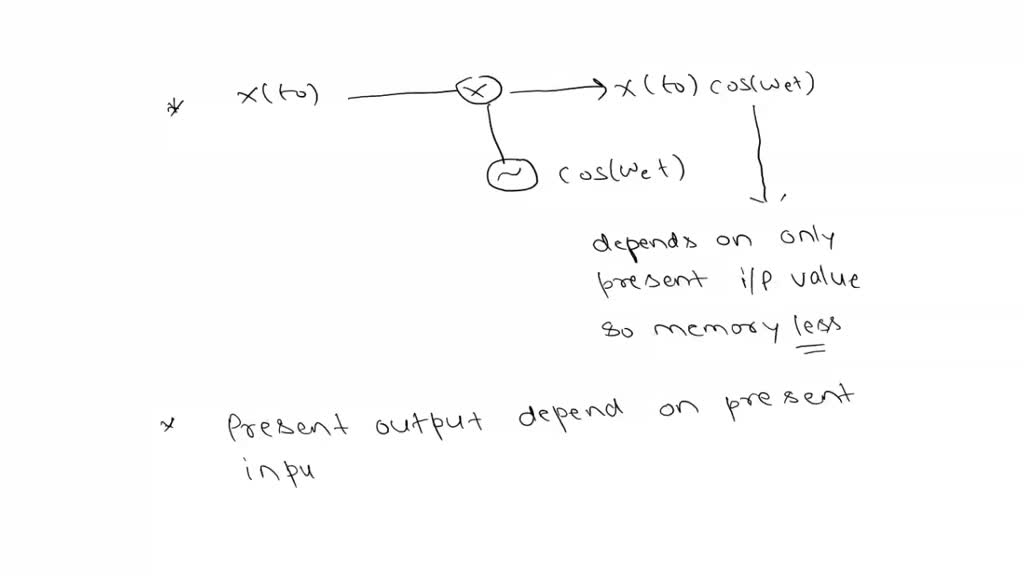 * x(to) x x(to) cos(wet)
~ cos(wet)
depends on only
present i/p value
so memory less
* Present output depend on present
inpu